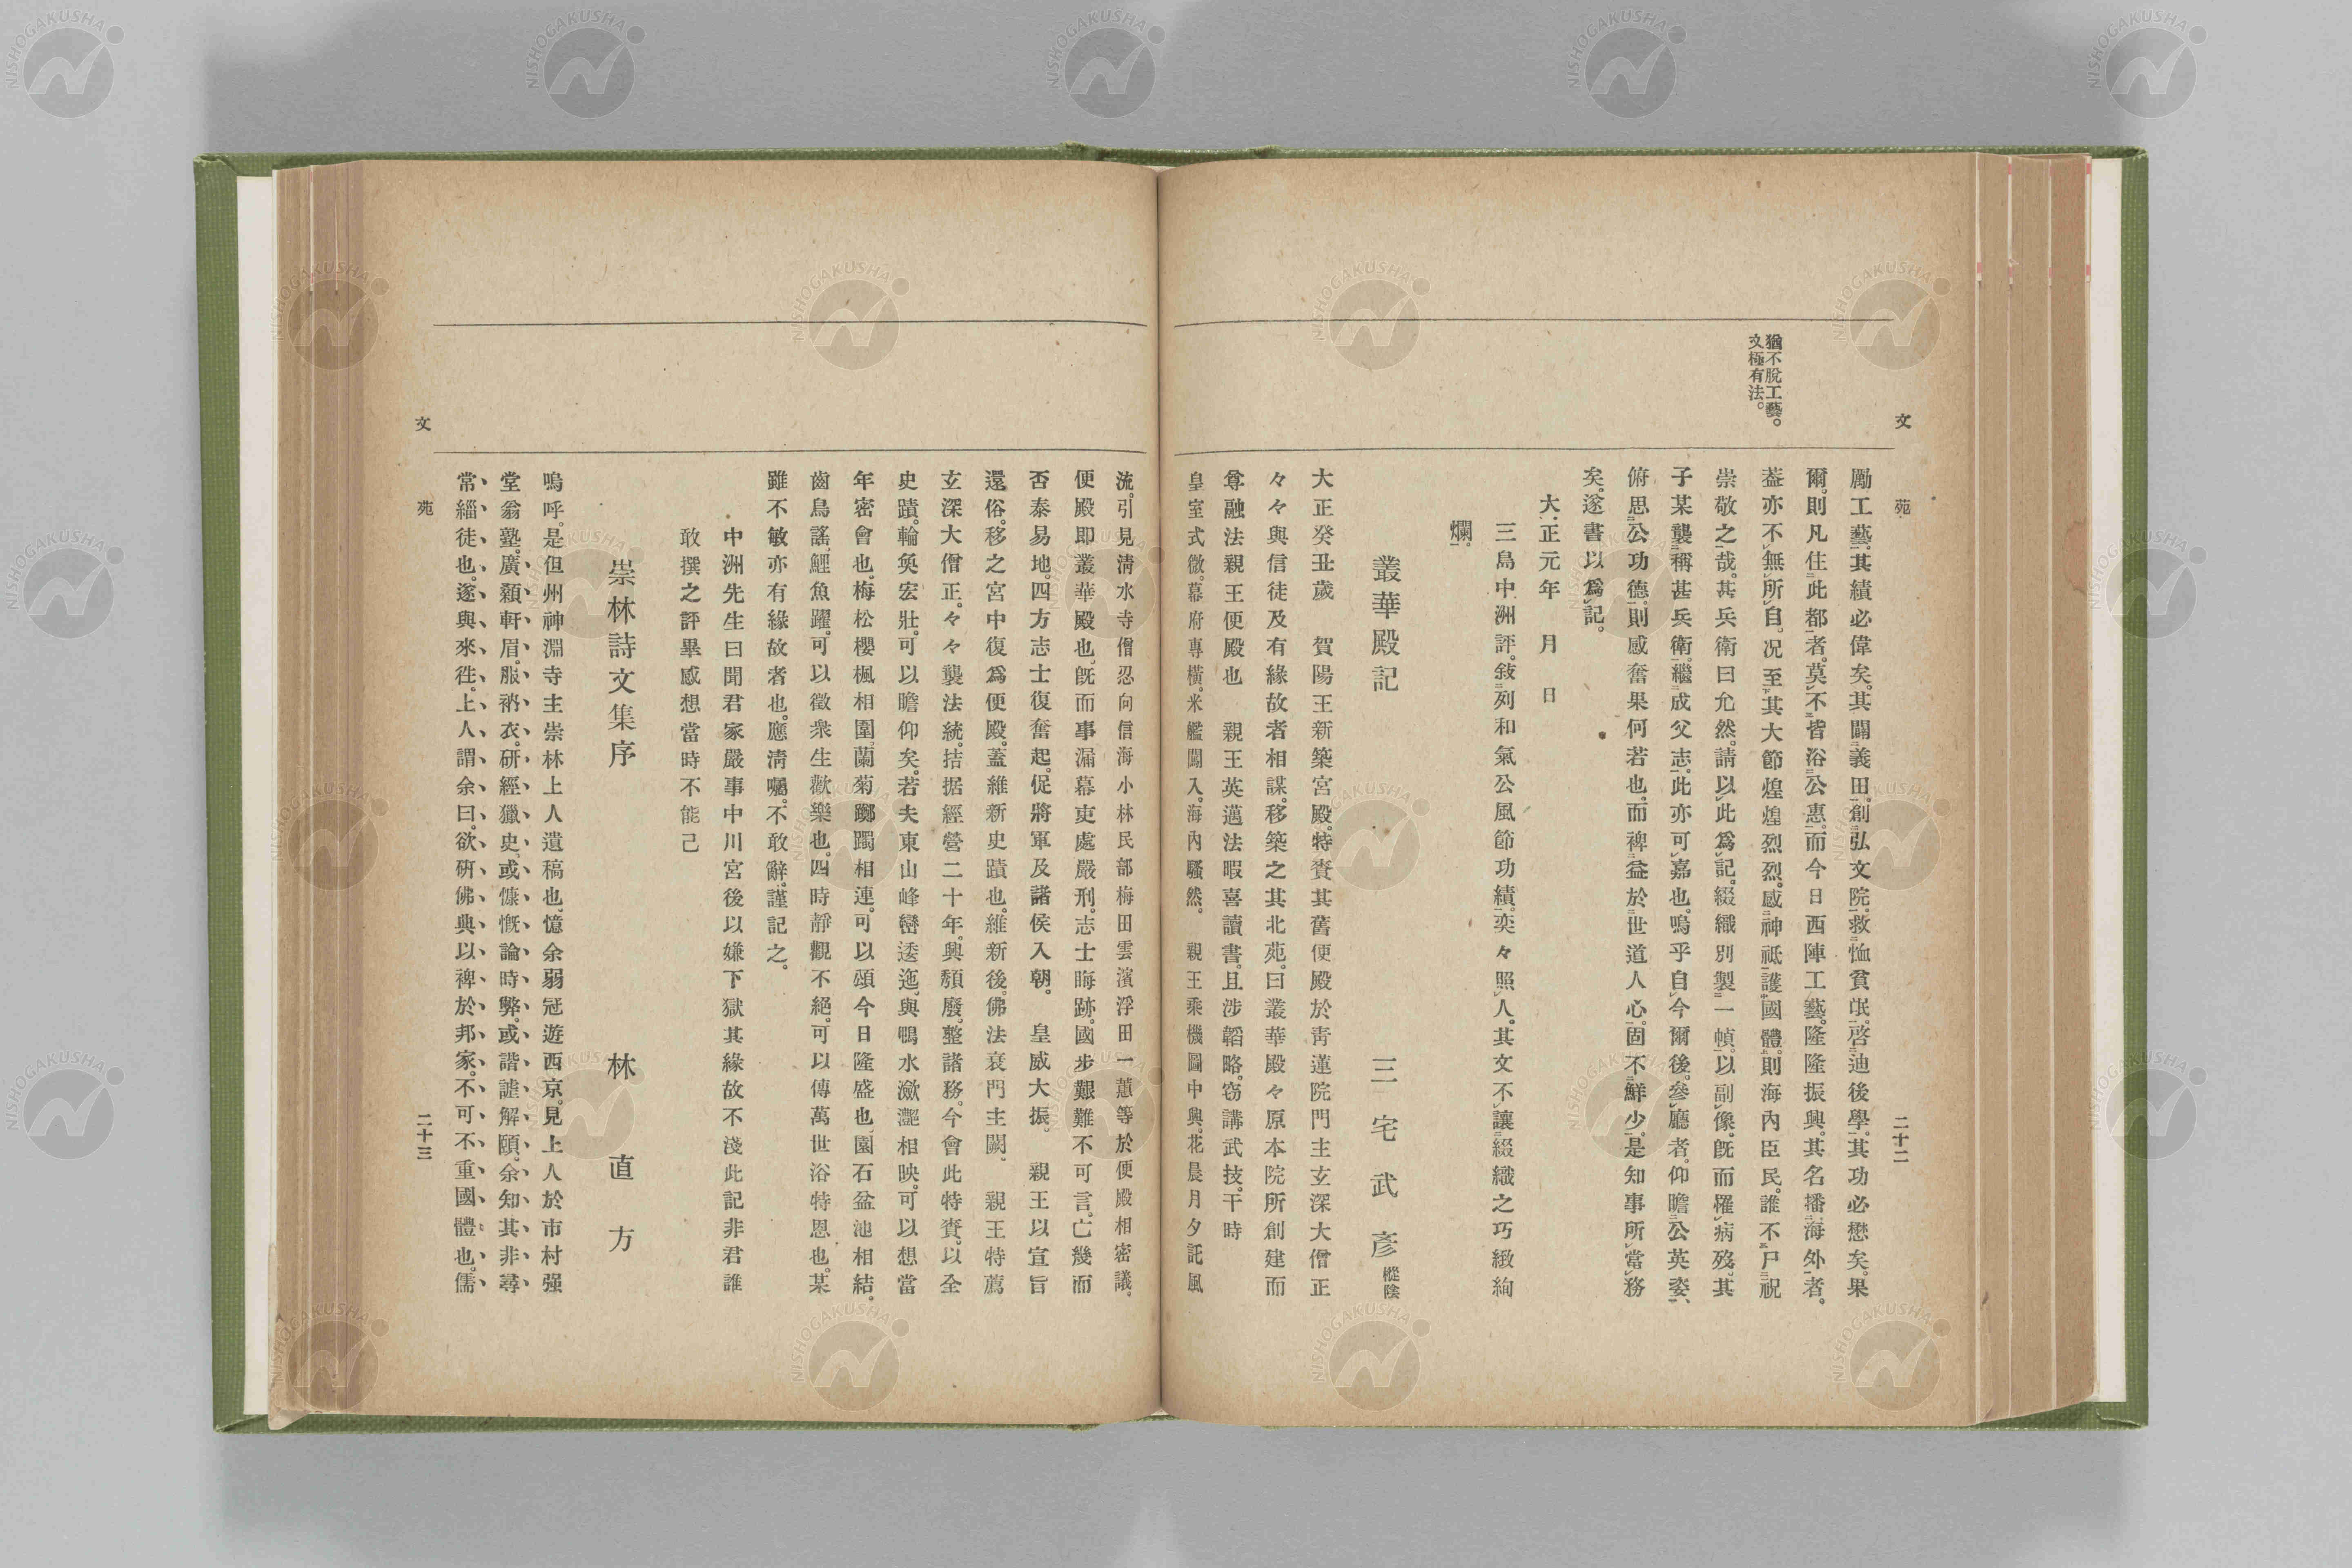 文苑
二十二
猶不脫工藝。
文極有法。
勵工藝。其績必偉矣。其闢義田。創弘文院。救恤貧氓。啓迪後學。其功必懋矣。果
爾。則凡住此都者。莫不皆浴公惠。而今日西陣工藝。隆隆振興。其名播海外者。
蓋亦不無所自。况至其大節煌煌烈烈。感神祗護國體。則海內臣民。誰不尸祝
崇敬之哉。其兵衛曰允然。請以此爲記。綴織別製一幀。以副像。既而罹病歿。其
子某襲稱甚兵衛。繼成父志。此亦可嘉也。嗚乎自今爾後。參廳者。仰瞻公英姿、
俯思公功德。則感奮果何若也。而裨益於世道人心。固不鮮少。是知事所當務
矣。遂書以爲記。
大正元年　月　日
三島中洲評。敍列和氣公風節功績。奕々照人。其文不讓綴織之巧緻絢
爛。
叢華殿記
三宅武彥 樅陰
大正癸丑歲　賀陽王新築宮殿。特賚其舊便殿於靑蓮院門主玄深大僧正
々々與信徒及有緣故者相謀。移築之其北苑。曰叢華殿々原本院所創建而
尊融法親王便殿也　親王英邁法暇喜讀書。且涉韜略。窃講武技。干時
皇室式微。幕府專橫。米艦闖入。海內騷然。　親王乘機圖中興。花晨月夕託風
流。引見淸水寺僧忍向信海小林民部梅田雲濱浮田一蕙等於便殿相密議。
便殿即叢華殿也。既而事漏幕吏處嚴刑。志士晦跡。國步艱難不可言。亡幾而
否泰易地。四方志士復奮起。促將軍及諸侯入朝。　皇威大振。　親王以宣旨
還俗。移之宮中復爲便殿。蓋維新史蹟也。維新後。佛法衰門主闕。　親王特薦
玄深大僧正。々々襲法統。拮据經營二十年。興頽廢。整諸務。今會此特賚。以全
史蹟。輪奐宏壯。可以瞻仰矣。若夫東山峰巒逶迤。與鴨水瀲灔相映。可以想當
年密會也。梅松櫻楓相圍。蘭菊躑躅相連。可以頌今日隆盛也。園石盆池相結。
齒鳥謠、鯉魚躍。可以徵衆生歡樂也。四時靜觀不絕。可以傳萬世浴特恩也。某
雖不敏亦有緣故者也。應淸囑。不敢辭。謹記之。
中洲先生曰聞君家嚴事中川宮後以嫌下獄其緣故不淺此記非君誰
敢撰之評畢感想當時不能已
崇林詩文集序
林直方
嗚呼。是但州神淵寺主崇林上人遺稿也。憶余弱冠遊西京。見上人於市村强
堂翁塾。廣顙軒眉。服衲衣。研經獵史、或慷慨論時弊。或諧謔解頤。余知其非尋
常緇徒也。遂與來徃。上人謂余曰。欲硏佛典以裨於邦家。不可不重國體也。儒
文苑
二十三